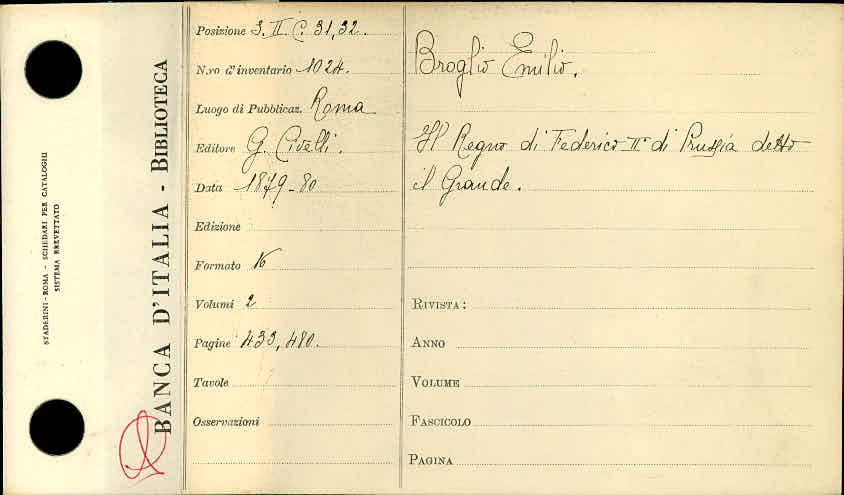 STADERINI - ROMA - SCHEDARI PER CATALOGHI
SISTEMA BREVETTATO
BANCA D'ITALIA - BIBLIOTECA
Posizione S. II. C. 31, 32.
N.ro d'inventario 1024.
Luogo di Pubblicaz. Roma
Editore G. Civelli.
Data 1879-80
Edizione
Formato 16
Volumi 2
Pagine 433, 480.
Tavole
Osservazioni
Broglio Emilio.
Il Regno di Federico IIº di Prussia detto
il Grande.
RIVISTA:
ANNO
VOLUME
FASCICOLO
PAGINA